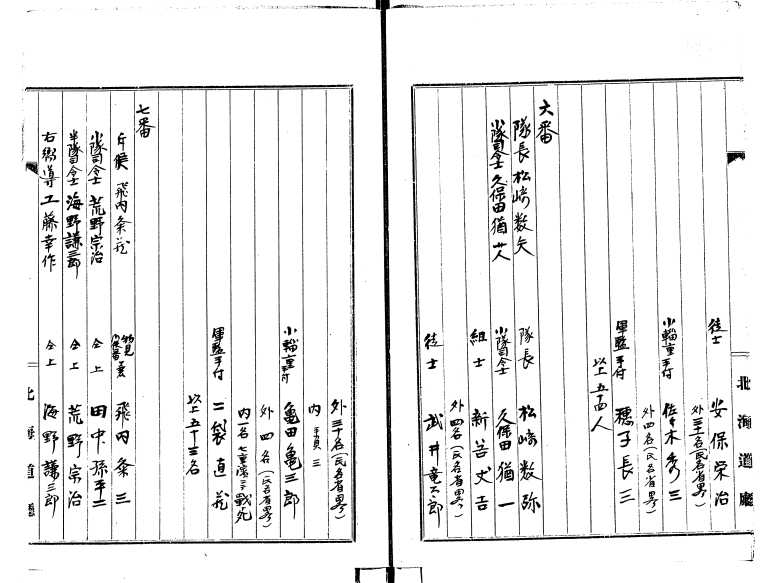 北海道廳
徒士 安保栄治
外三十一名(氏名省畧)
小輜重手付 佐々木秀三
外四名(氏名省畧)
軍監手付 穂子長三
以上五十四人
六番
隊長 松崎数矢 隊長 松崎数弥
小隊司令士 久保田猶人 小隊司令士 久保田猶一
組士 新谷丈吉
外四名(氏名省畧)
徒士 武井竜太郎
外三十名(氏名省畧)
内 手負三
小輜重手付 亀田亀三郎
外四名(氏名省畧)
内一名七重濱ニテ戦死
軍監手付 二袋直茂
以上五十三名
七番
斥候 飛内粂茂 飛内粂三
小隊司令士 荒野宗治 仝上 田中孫平二
半隊司令士 海野謙三郎 仝上 荒野宗治
右嚮導 工藤幸作 仝上 海野謙三郎